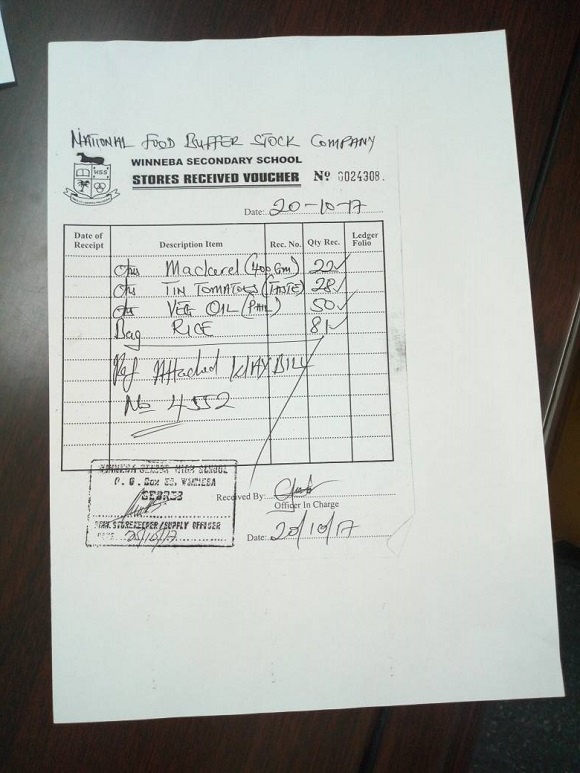 NATIONAL FOOD BUFFER STOCK COMPANY
WINNEBA SECONDARY SCHOOL
STORES RECEIVED VOUCHER No 0024308.
Date: 20-10-17
Date of Receipt Description Item Rec. No. Qty Rec. Ledger Folio
Mackarel (400Gm) 22✓
TIN TOMATOES (PASTE) 28✓
VEG OIL 50✓
Bag RICE 81✓
Ref Attached WAY BILL
No 4552
WINNEBA SENIOR HIGH SCHOOL
P. O. Box 25, WINNEBA
Received By:
Officer In Charge
STOREKEEPER/SUPPLY OFFICER
DATE 20/10/17
Date: 20/10/17